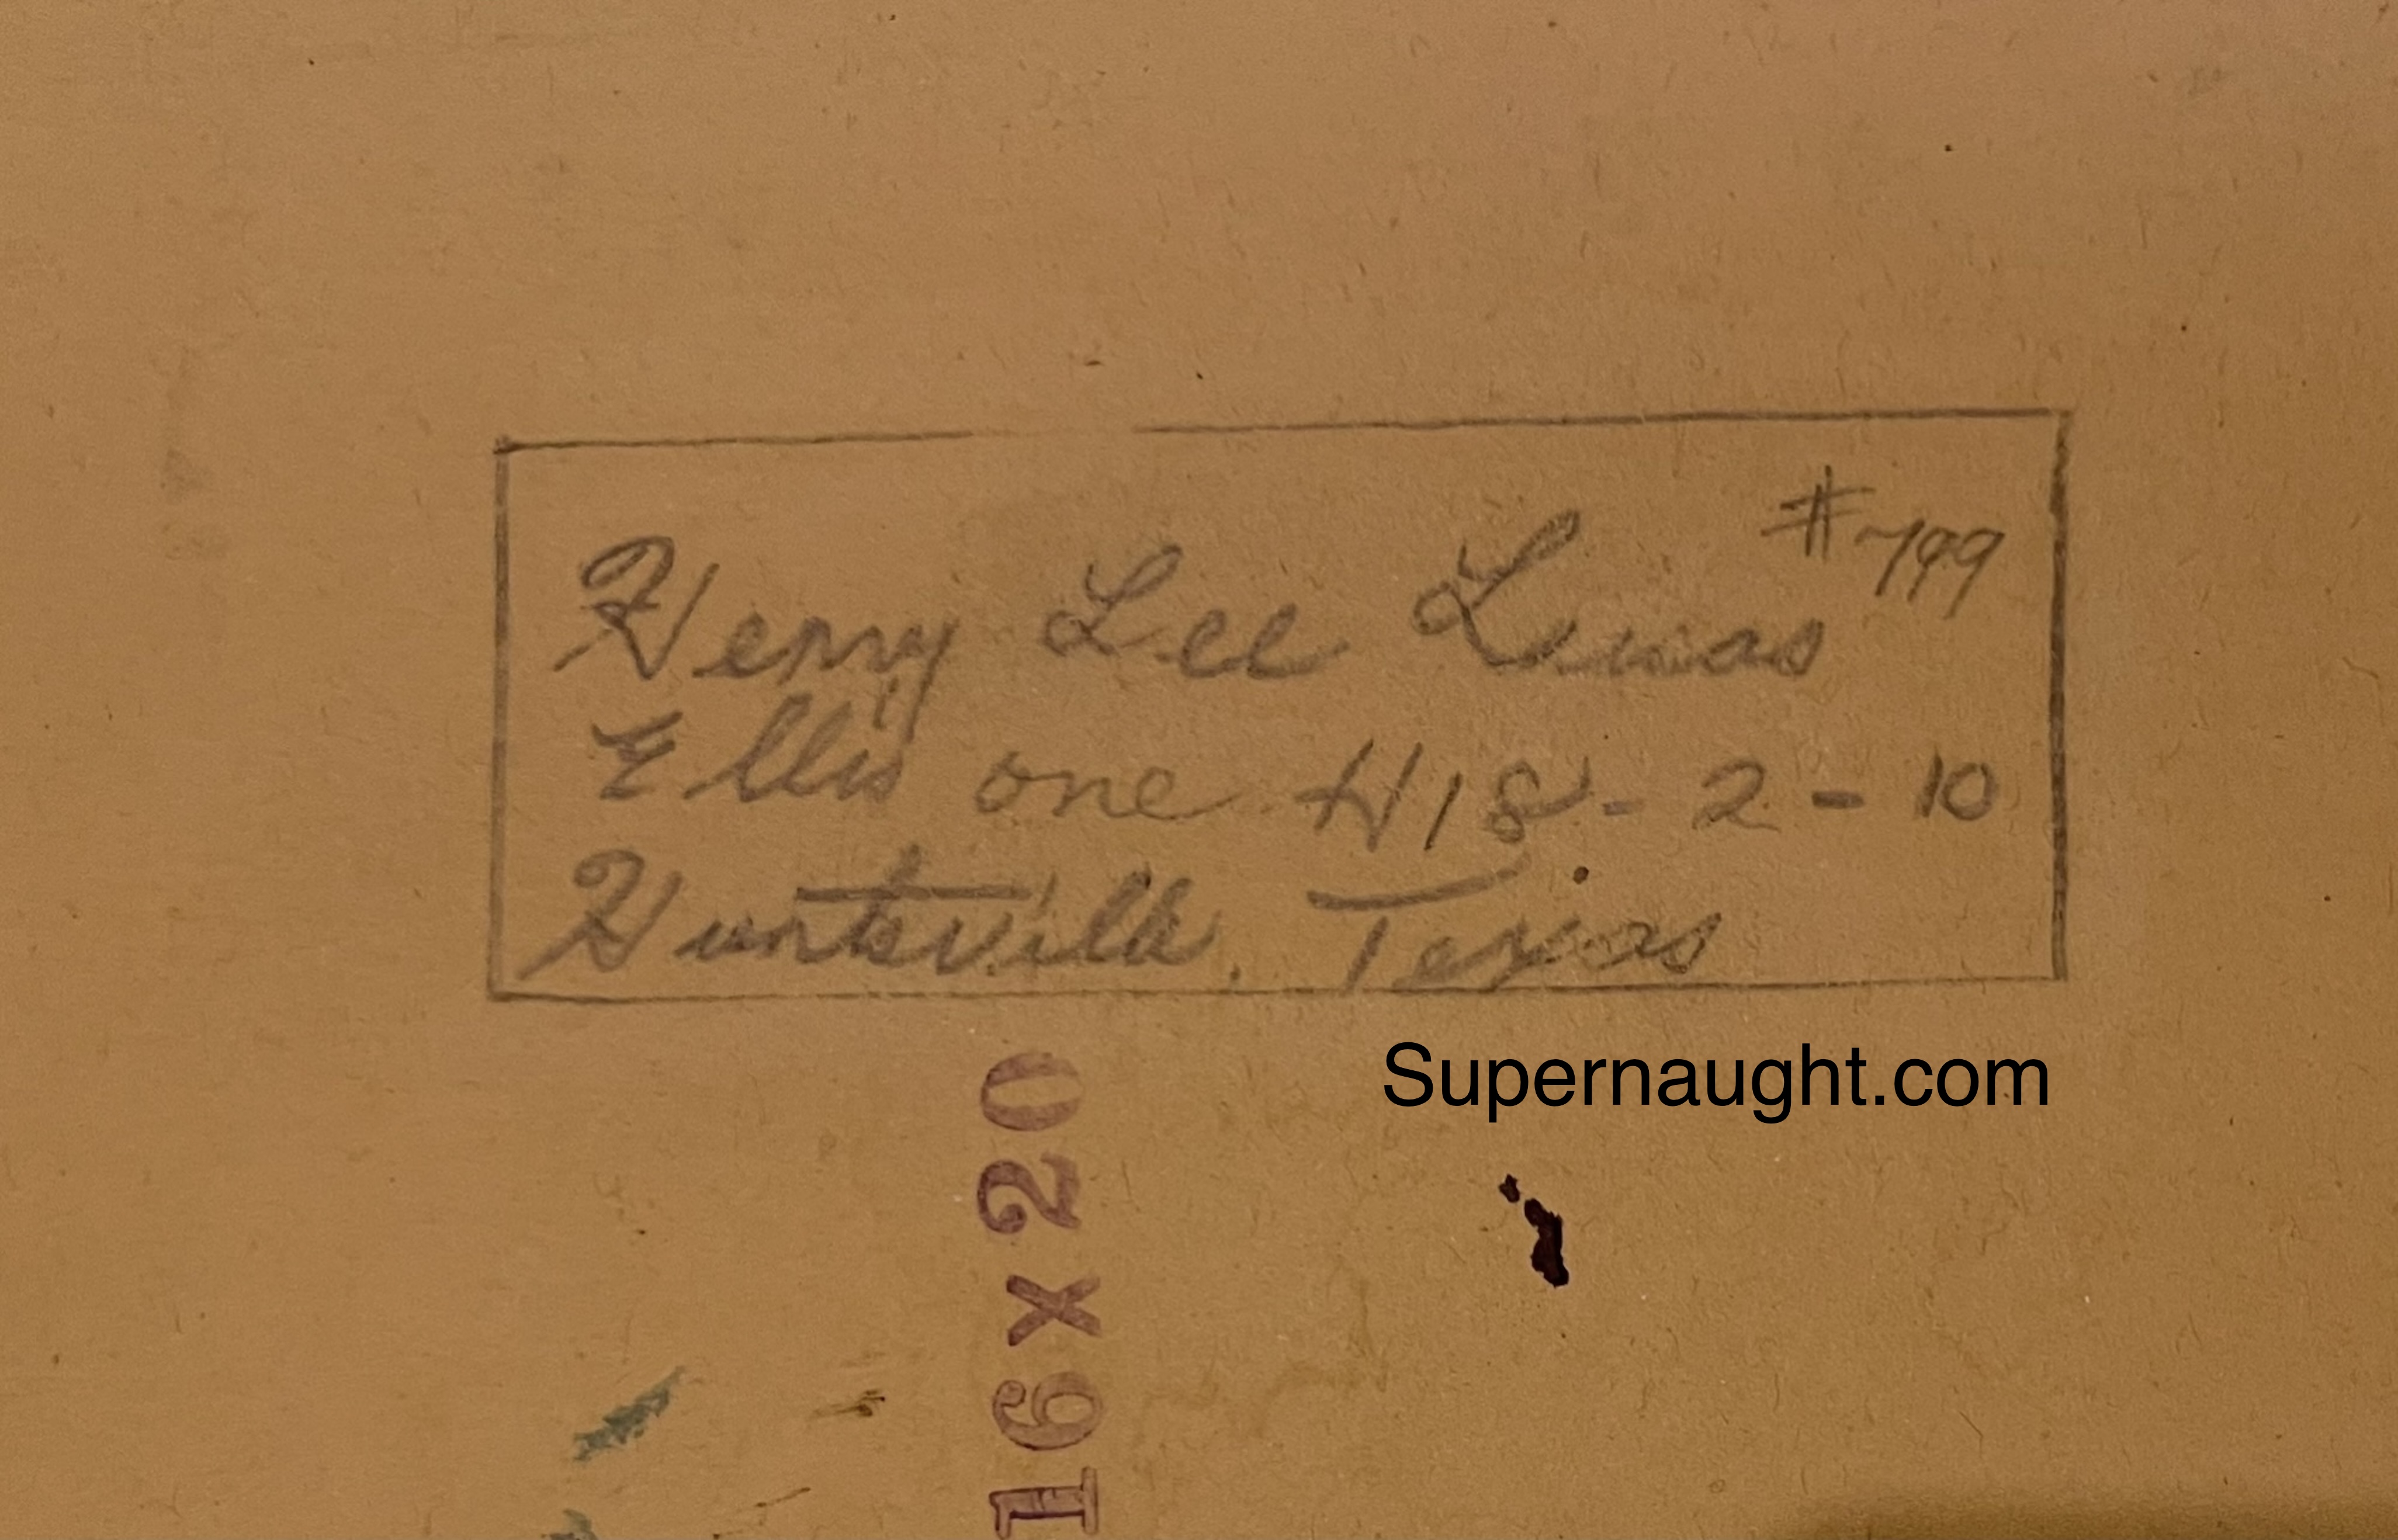 Henry Lee Lucas #799
Ellis one H18 - 2 - 10
Huntsville, Texas
Supernaught.com
16 x 20